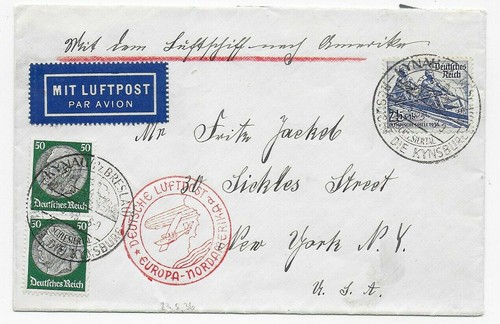 Mit dem Luftschiff nach Amerika
MIT LUFTPOST
PAR AVION
Deutsches
Reich
KYNAU
DIE KYNSBURG
Mr Fritz Jackel
Sickles Street
New York N.Y.
U.S.A
50
Deutsches Reich
50
Deutsches Reich
KYNAU
BRESLAU
KYNSBURG
DEUTSCHE LUFTPOST
EUROPA-NORDAMERIKA
23.5.36